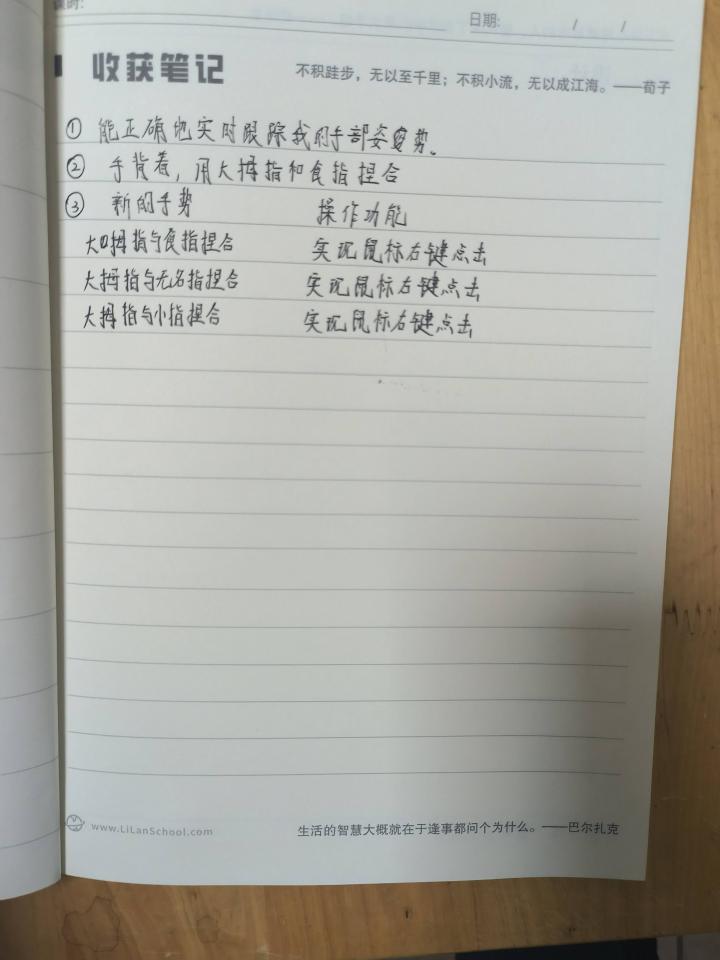 课时:
日期: / /
收获笔记 不积跬步，无以至千里；不积小流，无以成江海。——荀子
① 能正确地实时跟踪我的手部姿势。
② 手背着，用大拇指和食指捏合
③ 新的手势 操作功能
大拇指与食指捏合 实现鼠标右键点击
大拇指与无名指捏合 实现鼠标右键点击
大拇指与小指捏合 实现鼠标右键点击
www.LiLanSchool.com 生活的智慧大概就在于逢事都问个为什么。——巴尔扎克